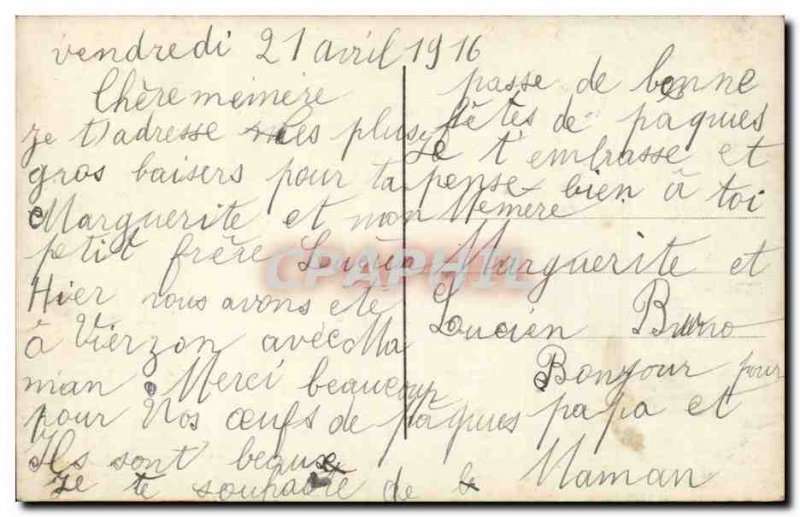 vendredi 21 avril 1916
Chère mémère
je t'adresse mes plus
gros baisers pour ta
Marguerite et mon
petit frère Lucien
Hier nous avons ete
à Vierzon avec Ma
man. Merci beaucoup
pour Vos œufs de pâques
Ils sont beaux
je te souhaite de
passe de bonne
fêtes de pâques
Je t'embrasse et
pense bien à toi
Mémère
Marguerite et
Loucien Bruno
Bonjour pour
papa et
Maman
CPAPHIL